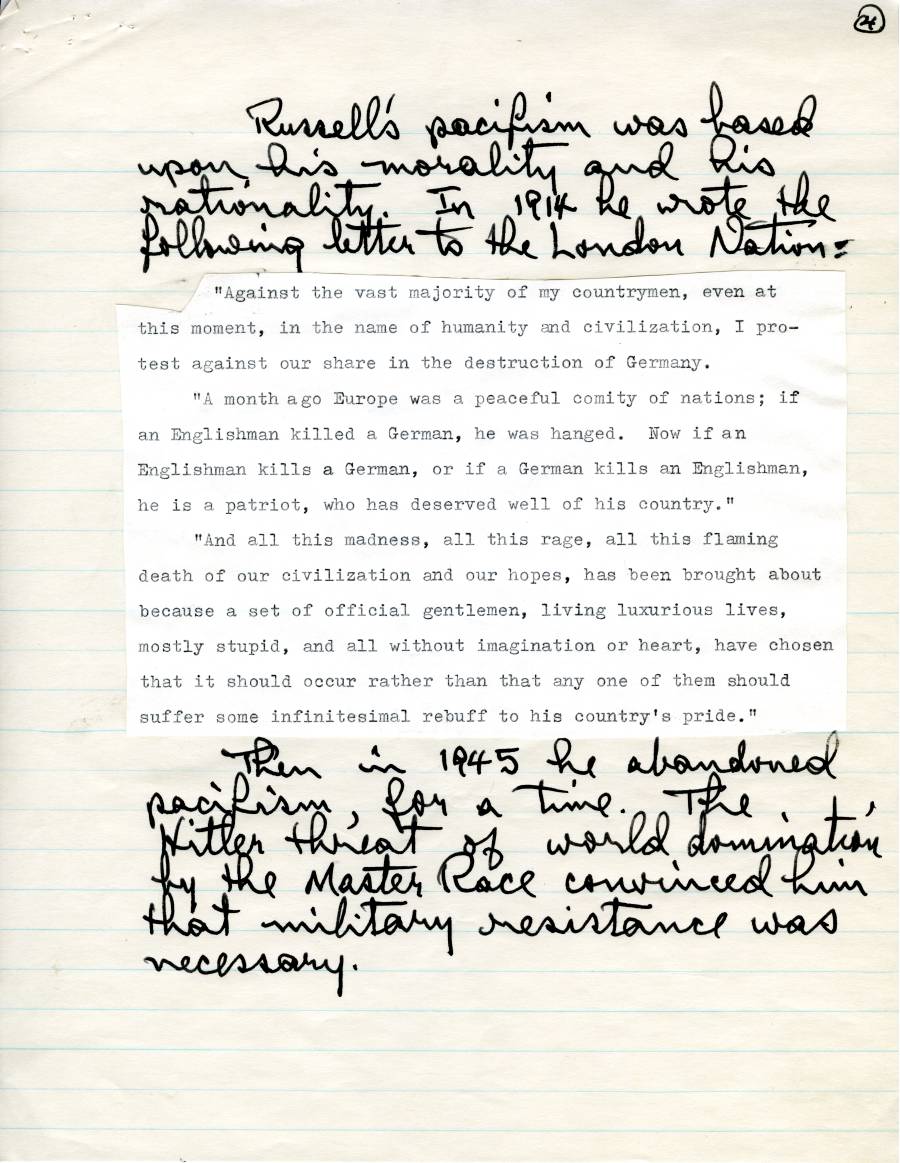 24
Russell's pacifism was based
upon his morality and his
rationality. In 1914 he wrote the
following letter to the London Nation:
"Against the vast majority of my countrymen, even at
this moment, in the name of humanity and civilization, I pro-
test against our share in the destruction of Germany.
"A month ago Europe was a peaceful comity of nations; if
an Englishman killed a German, he was hanged. Now if an
Englishman kills a German, or if a German kills an Englishman,
he is a patriot, who has deserved well of his country."
"And all this madness, all this rage, all this flaming
death of our civilization and our hopes, has been brought about
because a set of official gentlemen, living luxurious lives,
mostly stupid, and all without imagination or heart, have chosen
that it should occur rather than that any one of them should
suffer some infinitesimal rebuff to his country's pride."
Then in 1945 he abandoned
pacifism, for a time. The
Hitler threat of world domination
by the Master Race convinced him
that military resistance was
necessary.